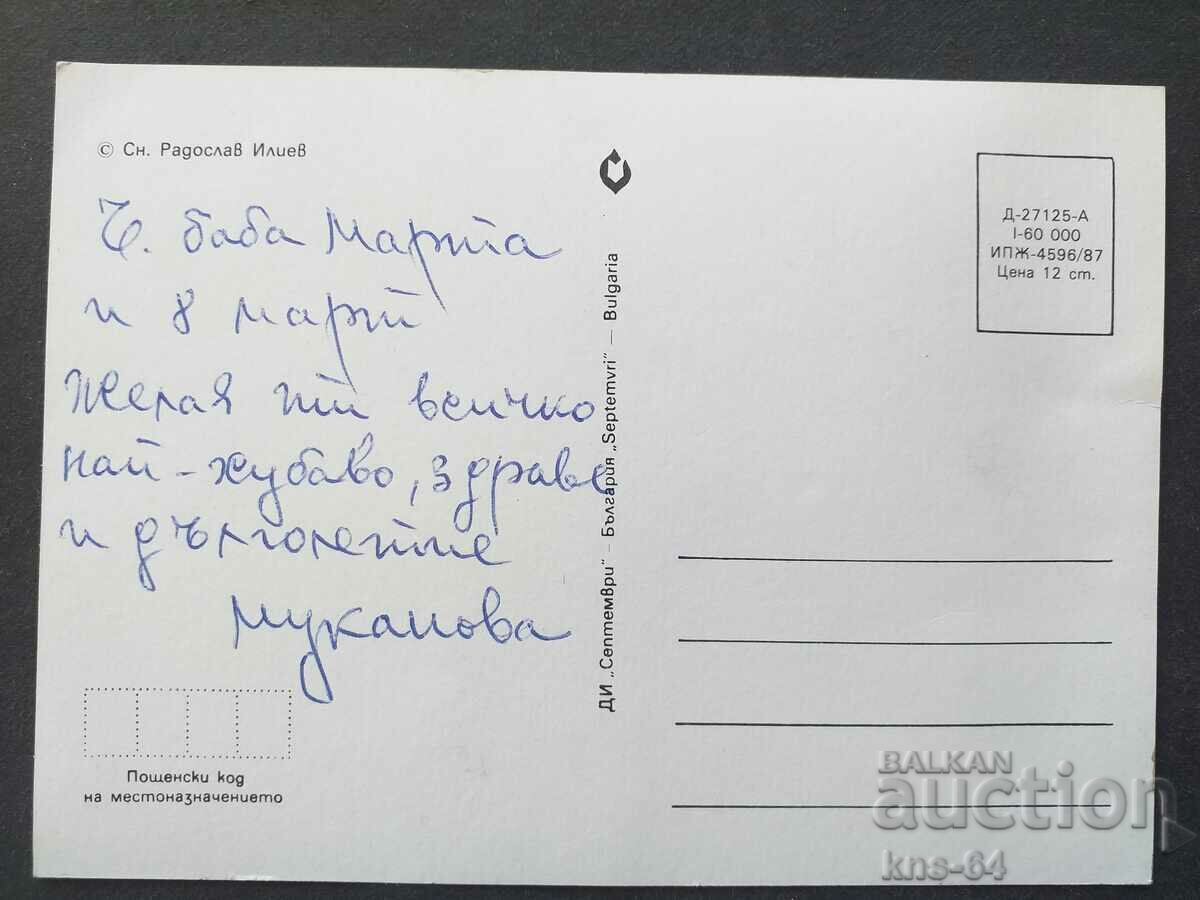 © Сн. Радослав Илиев
Ч. баба Марта
и 8 март
Желая ти всичко
най-хубаво, здраве
и дълголетие
Муканова
Пощенски код
на местоназначението
ДИ „Септември“ – България „Septemvri“ — Bulgaria
Д-27125-А
I-60 000
ИПЖ-4596/87
Цена 12 ст.
BALKAN
auction
kns-64